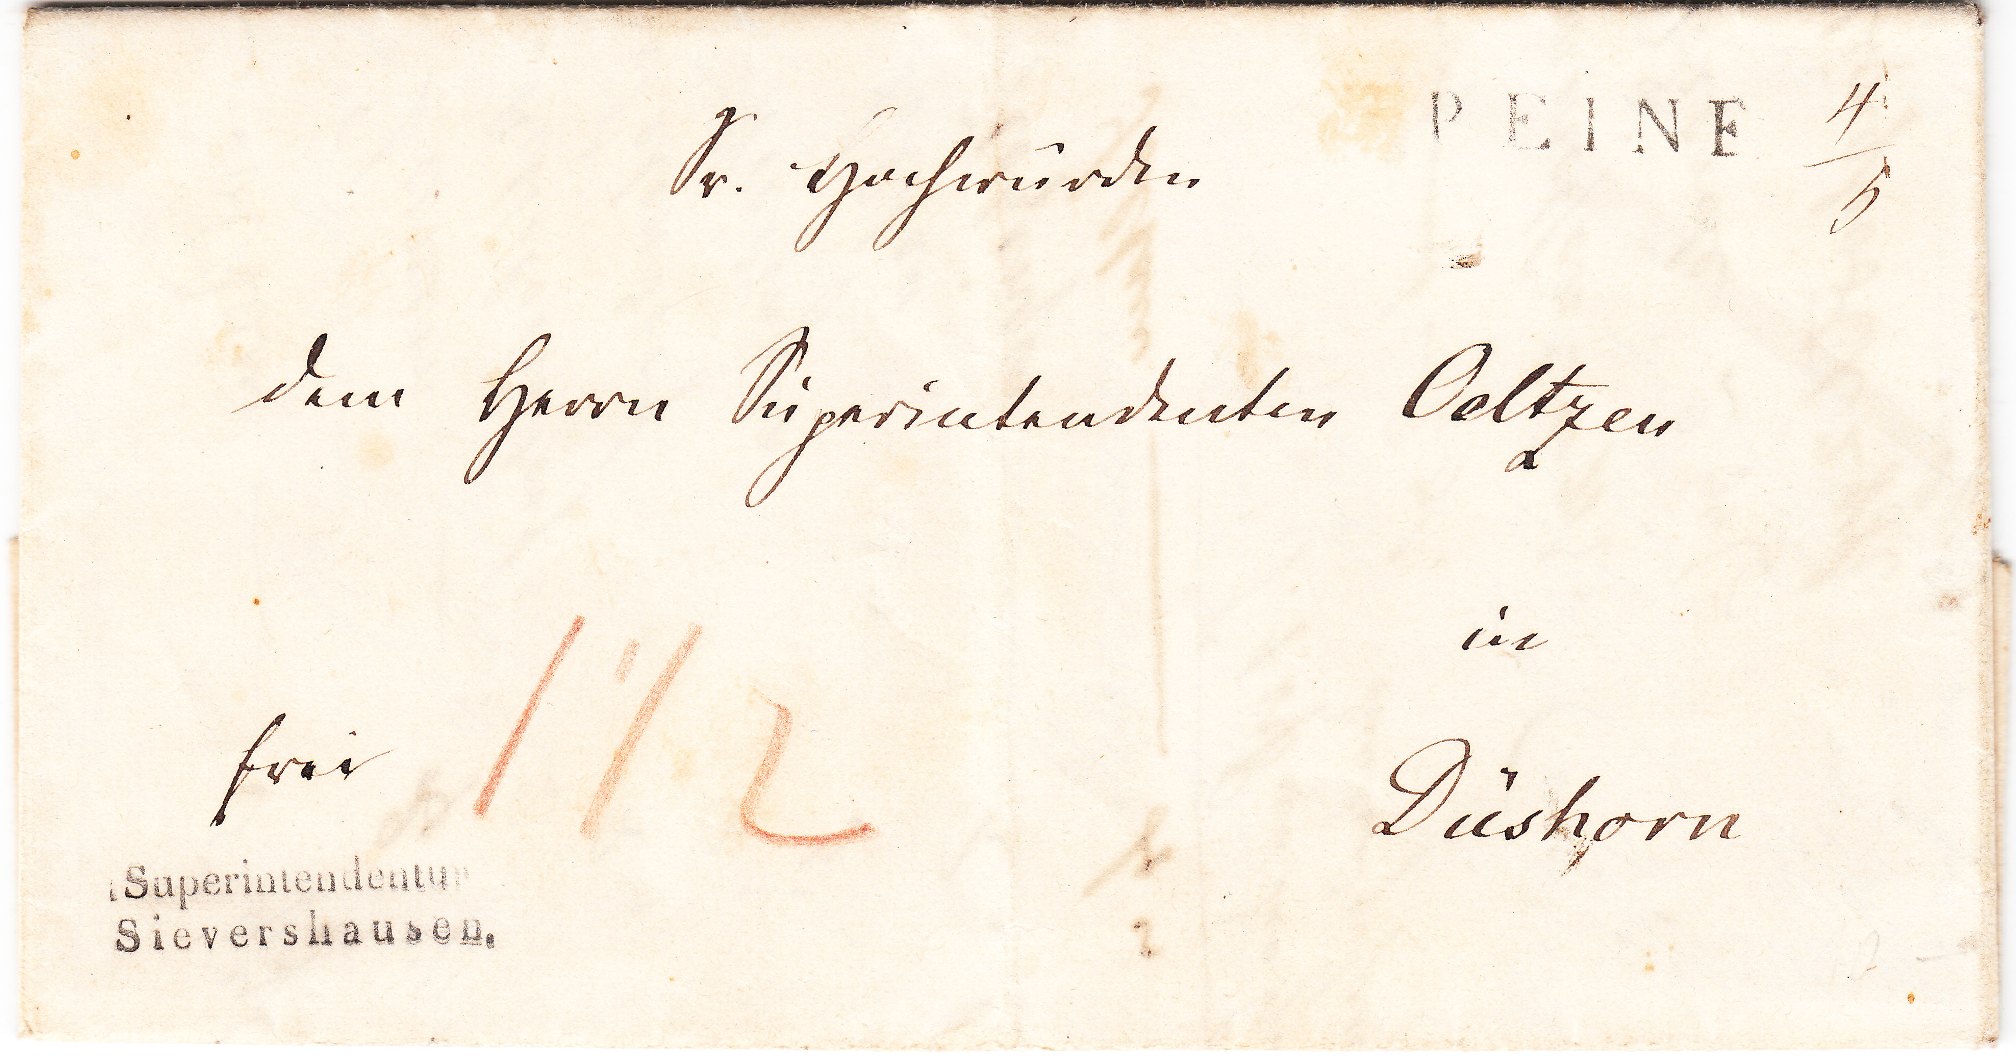 PEINE 4/5
Sr. Hochwürden
dem Herrn Superintendenten Oeltzen
in
frei 1 1/2
Düshorn
Superintendentur
Sievershausen.